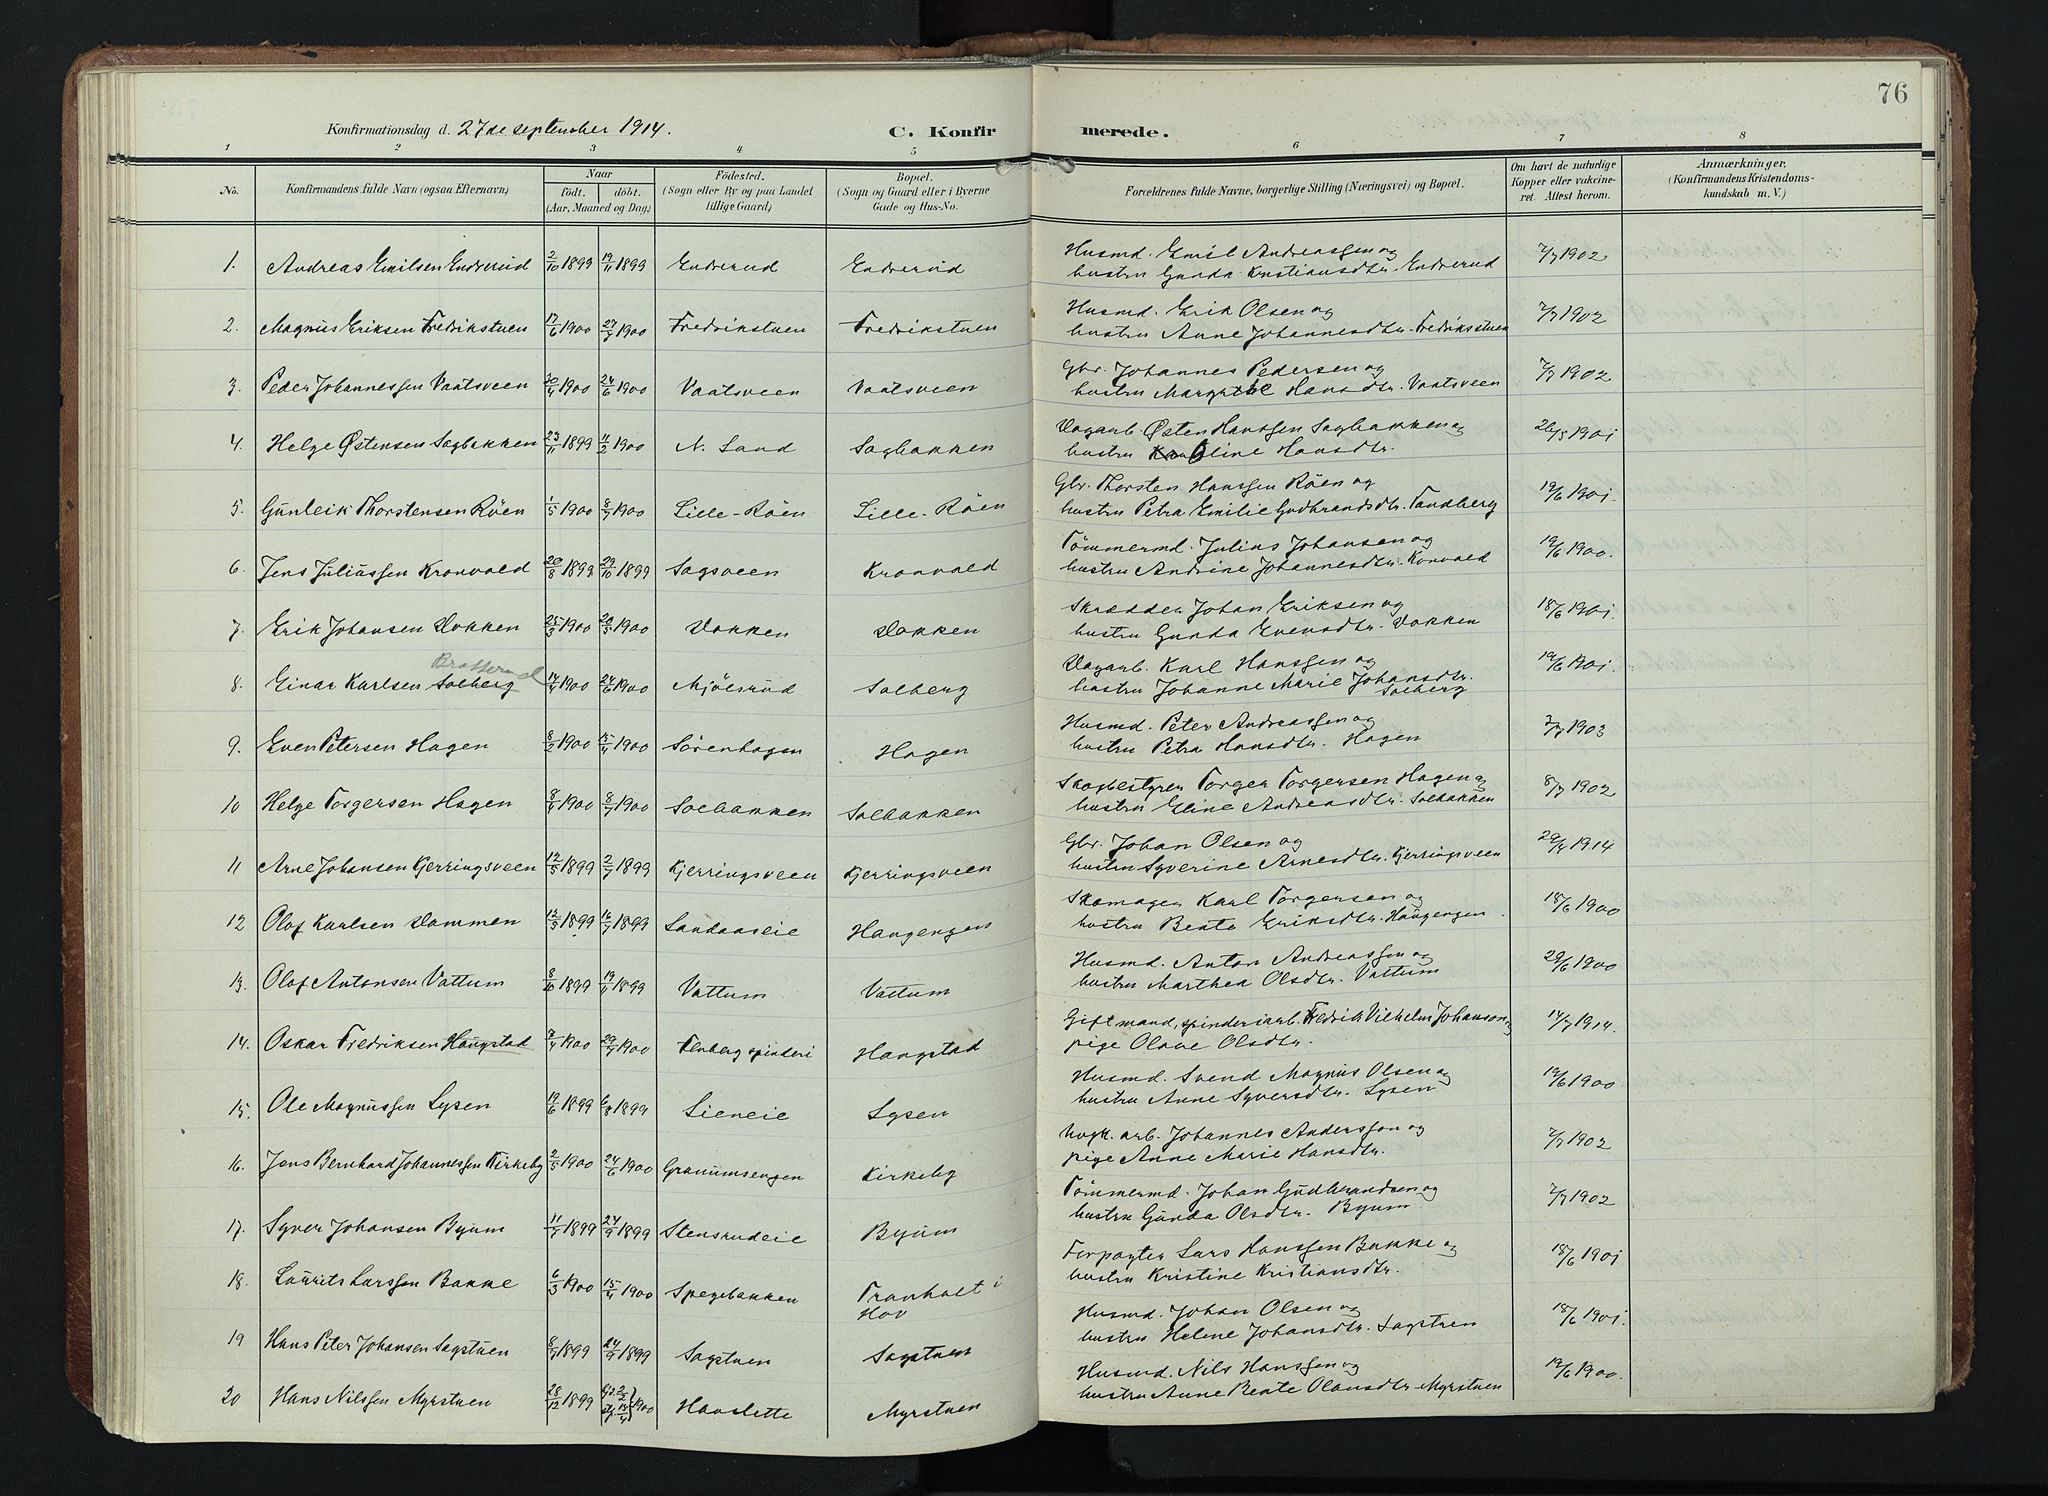 76
Konfirmationsdag d. 27de september 1914.
C. Konfirmerede.
1 2 3 4 5 6 7 8
No.
Konfirmandens fulde Navn (ogsaa Efternavn)
Naar
födt. döbt.
(Aar, Maaned og Dag)
Födested.
(Sogn eller By og paa Landet
tillige Gaard)
Bopæl.
(Sogn og Gaard eller i Byerne
Gade og Hus-No.
Forældrenes fulde Navne, borgerlige Stilling (Næringsvei) og Bopæl.
Om havt de naturlige
Kopper eller vakcine-
ret. Attest herom.
Anmærkninger.
(Konfirmandens Kristendoms-
kundskab m. V.)
1. Andreas Emilsen Endrerud 2/10 1899 19/11 1899 Endrerud Endrerud Husmd. Emil Andreassen og 7/7 1902
hustru Gunda Kristiansdtr. Endrerud
2. Magnus Eriksen Fredrikstuen 17/6 1900 27/7 1900 Fredrikstuen Fredrikstuen Husmd. Erik Olsen og 7/7 1902
hustru Anne Johannesdtr. Fredriksstuen
3. Peder Johannessen Vaatsveen 30/4 1900 24/6 1900 Vaatsveen Vaatsveen Gbr. Johannes Pedersen og 7/7 1902
hustru Margrethe Hansdtr. Vaatsveen
4. Helge Østensen Sagbakken 23/11 1899 11/2 1900 N. Sand Sagbakken Dagarb. Østen Hanssen Sagbakken og 26/5 1901
hustru Oline Hansdtr.
5. Gunleik Thorstensen Röen 1/5 1900 8/7 1900 Lille-Röen Lille-Röen Gbr. Thorsten Hanssen Röen og 19/6 1901.
hustru Petra Emilie Gudbrandsdtr. Tandberg
6. Jens Juliussen Kronvold 20/8 1899 29/10 1899 Sagsveen Kronvold Tömmermd. Julius Johansen og 19/6 1900.
hustru Andrine Johannesdtr. Konvold
7. Erik Johansen Dokken 25/3 1900 20/5 1900 Dokken Dokken Skrædder Johan Eriksen og 18/6 1901.
hustru Gunda Evensdtr. Dokken
Bratterud
8. Einar Karlsen Solberg 14/4 1900 24/6 1900 Mjölsrud Solberg Dagarb. Karl Hanssen og 19/6 1901
hustru Johanne Marie Johansdtr.
Solberg
9. Even Petersen Hagen 8/2 1900 15/4 1900 Sörenhagen Hagen Husmd. Peter Andreassen og 3/7 1903
hustru Petra Hansdtr. Hagen
10 Helge Torgersen Hagen 8/4 1900 8/7 1900 Solbakken Solbakken Skogbestyrer Torger Torgersen Hagen og 8/7 1902
hustru Eline Andreasdtr. Solbakken
11 Arne Johansen Kjerringsveen 12/5 1899 2/7 1899 Kjerringsveen Kjerringsveen Gbr. Johan Olsen og 29/4 1914
hustru Syverine Arnesdtr. Kjerringsveen
12 Olaf Karlsen Dammen 12/5 1899 16/7 1899 Landaaseie Haugengen Skomager Karl Torgersen og 18/6 1900
hustru Beate Eriksdtr. Haugengen
13. Olaf Antonsen Vattum 8/10 1899 19/11 1899 Vattum Vattum Husmd. Anton Andreassen og 29/6 1900
hustru Marthea Olsdtr. Vattum
14. Oskar Fredriksen Haugstad 7/4 1900 29/7 1900 Fluberg spinderi Haugstad Gift mand, spinderiarb. Fredrik Vilhelm Johanson og 14/7 1914.
pige Olave Olsdtr.
15. Ole Magnussen Lysen 19/6 1899 6/8 1899 Lieneie Lysen Husmd. Svend Magnus Olsen og 19/6 1900
hustru Anne Syversdtr. Lysen
16. Jens Bernhard Johannessen Kirkeby 2/5 1900 24/6 1900 Granumsengen Kirkeby Ungk. arb. Johannes Anderssen og 7/7 1902
pige Anne Marie Hansdtr.
17. Syver Johansen Byum 11/7 1899 24/9 1899 Stensrudeie Byum Tömmermd. Johan Gudbrandsen og 7/7 1902
hustru Gunda Olsdtr. Byum
18. Laurits Larssen Bakke 6/3 1900 15/4 1900 Spegebakken Tranholt i
Hov
Forpagter Lars Hanssen Bakke og 18/6 1901
hustru Kristine Kristiansdtr.
19 Hans Peter Johansen Sagstuen 8/7 1899 24/9 1899 Sagstuen Sagstuen Husmd. Johan Olsen og 18/6 1901.
hustru Helene Johansdtr. Sagstuen
20 Hans Nilssen Myrstuen 28/12 1899 2/2 15/4 1900 Havslette Myrstuen Husmd. Nils Hanssen og 19/6 1900.
hustru Anne Beate Olausdtr. Myrstuen